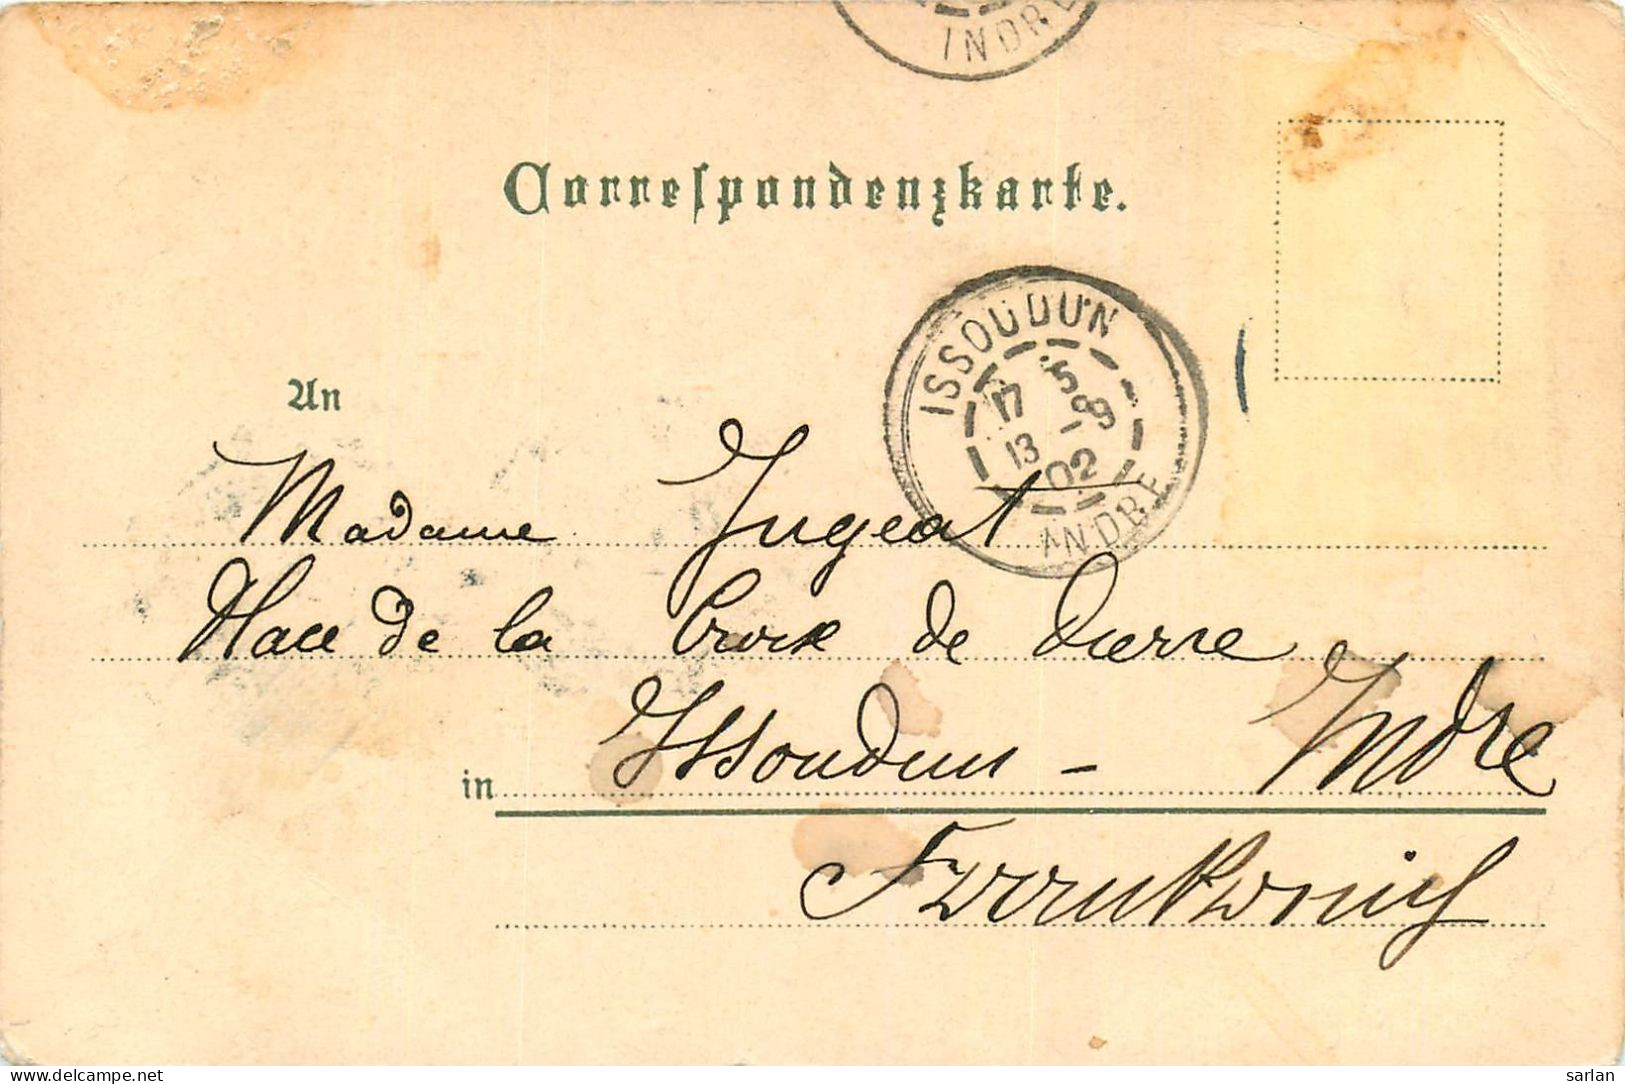 INDRE
Correspondenzkarte.
ISSOUDUN
17 5
13 -9
02
INDRE
An
Madame Jugeat
Place de la Croix de Pierre
in Issoudun - Indre
Frankreich
www.delcampe.net
sarlan